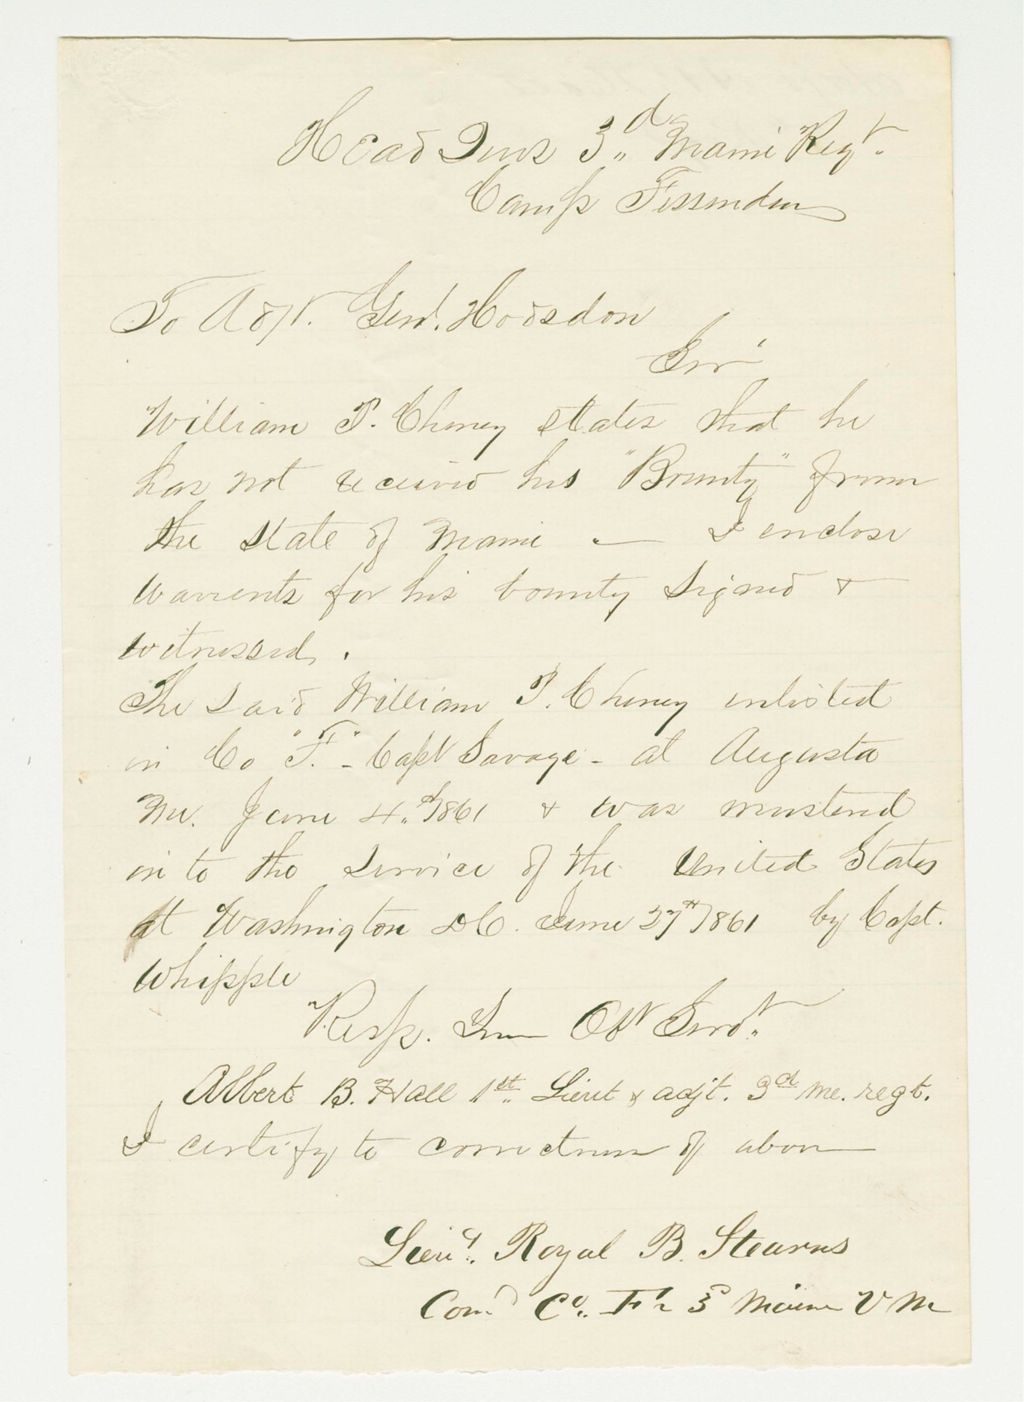 Head Qurs 3d Maine Regt.
Camp Fessenden
To Adjt. Genl. Hodsdon
Sir
William P. Cheney states that he
has not received his "Bounty" from
the State of Maine — I enclose
warrents for his bounty signed &
witnessed.
The said William P. Cheney enlisted
in Co "F" - Capt Savage - at Augusta
Me. June 4th 1861 & was mustered
in to the service of the United States
at Washington DC. June 27th 1861 by Capt.
Whipple
Resp. Your Obt Servt.
Albert B. Hall 1st. Lieut & adjt. 3d me. regt.
I certify to correctness of above
Lieut. Royal B. Stearns
Comd Co. F. 3d Maine V M